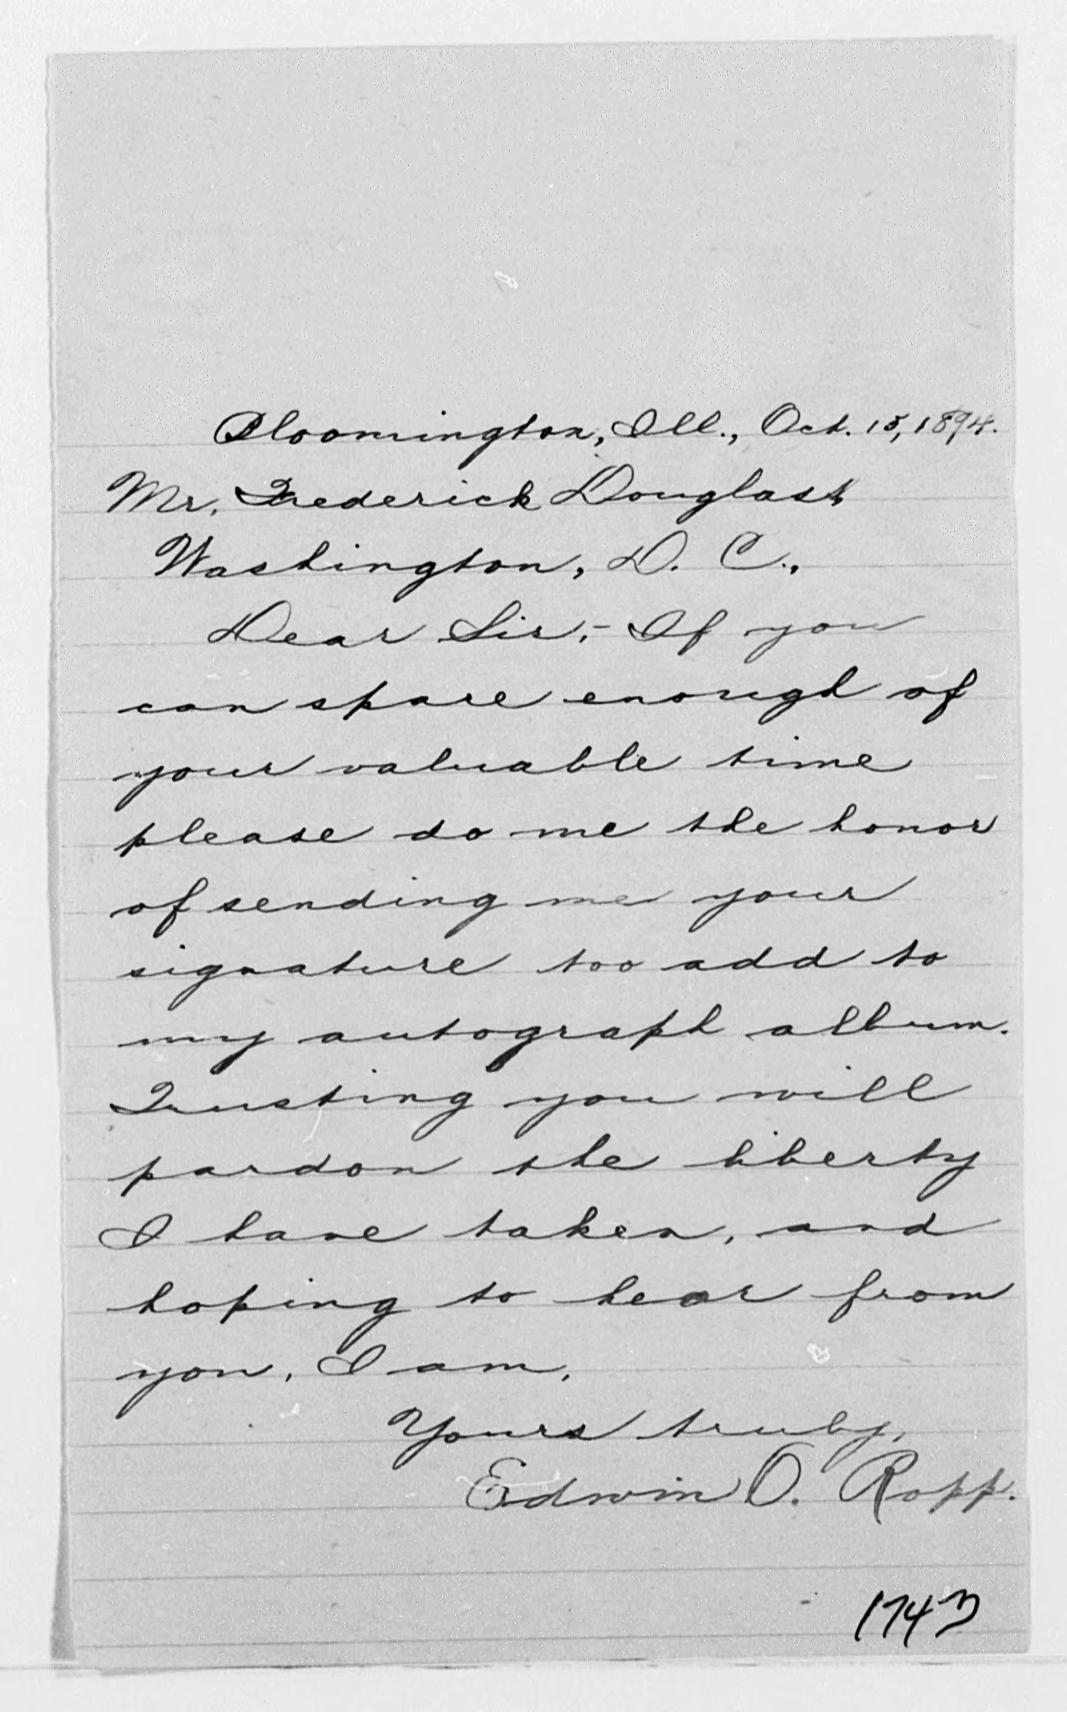 Bloomington, Ill., Oct. 15, 1894.
Mr. Frederick Douglass,
Washington, D. C.,
Dear Sir:- If you
can spare enough of
your valuable time
please do me the honor
of sending me your
signature too add to
my autograph album.
Trusting you will
pardon the liberty
I have taken, and
hoping to hear from
you, I am,
Yours truly,
Edwin O. Ropp.
1743